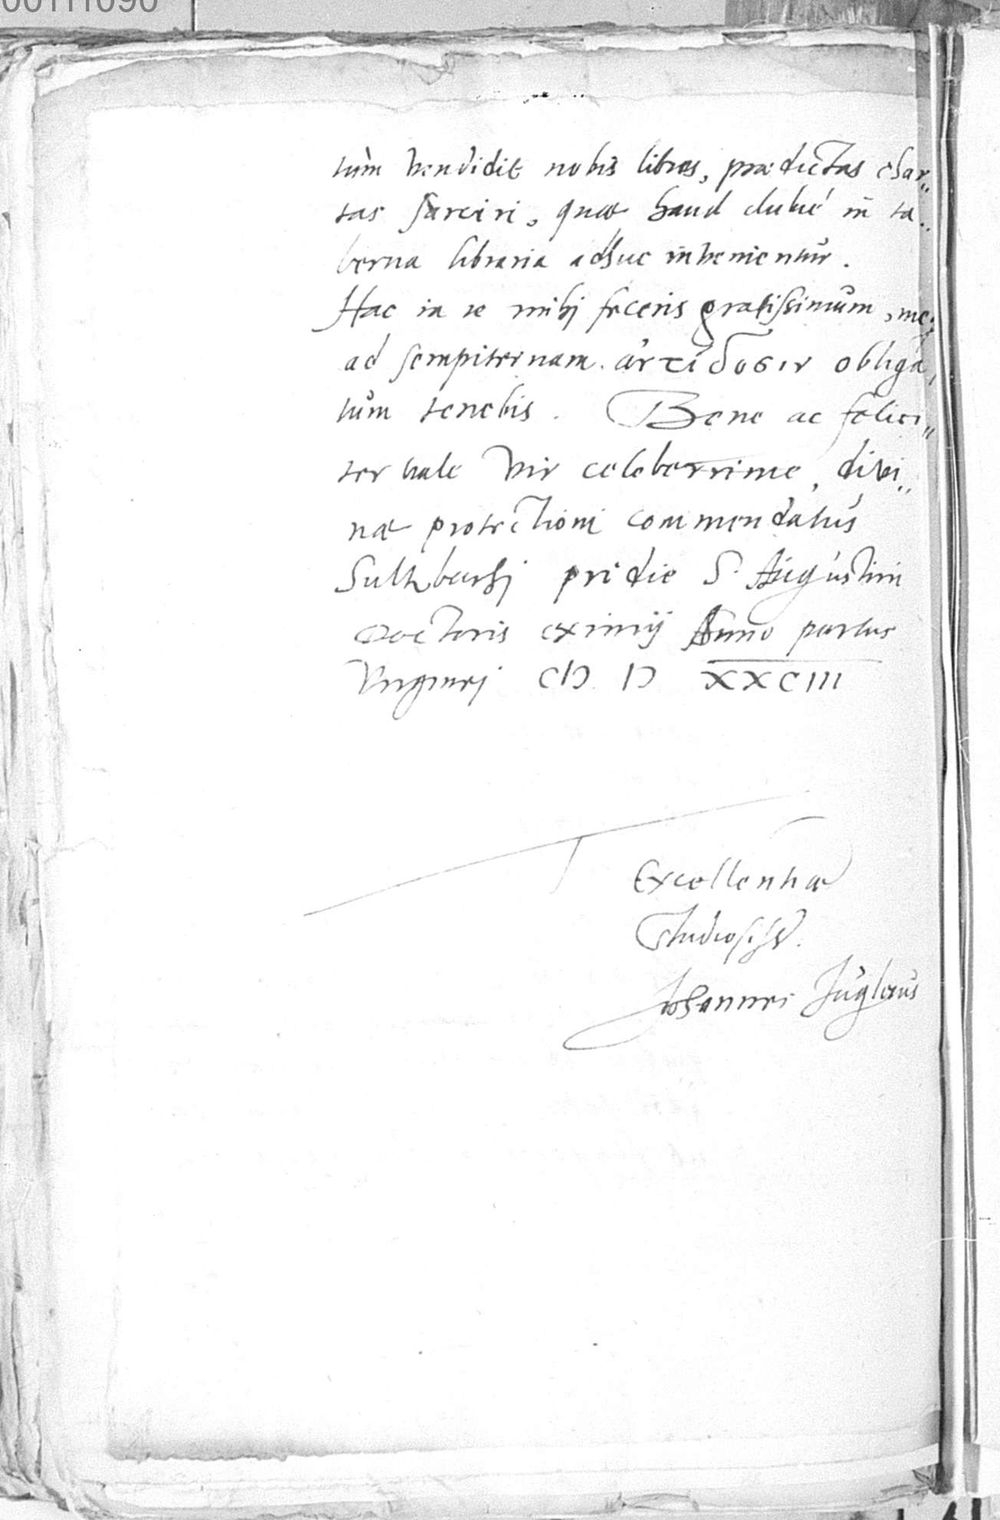 00111090
tum vendidit nobis libros, prædictas char„
tas sarciri, quæ haud dubié in ta„
berna libraria adhuc invenientur.
Hac in re mihj feceris gratissimum, me„
ad sempiternam ἀντίδοσιν obliga„
tum tenebis. Bene ac felici„
ter vale Vir celeberrime, divi„
næ protectioni commendatus
Sultzbachj pridie S. Augustini
Doctoris eximij Anno partus
Virginej CIↃ. IↃ XXCIII
Excellentiæ
Studosiss.
Johannes Juglerus